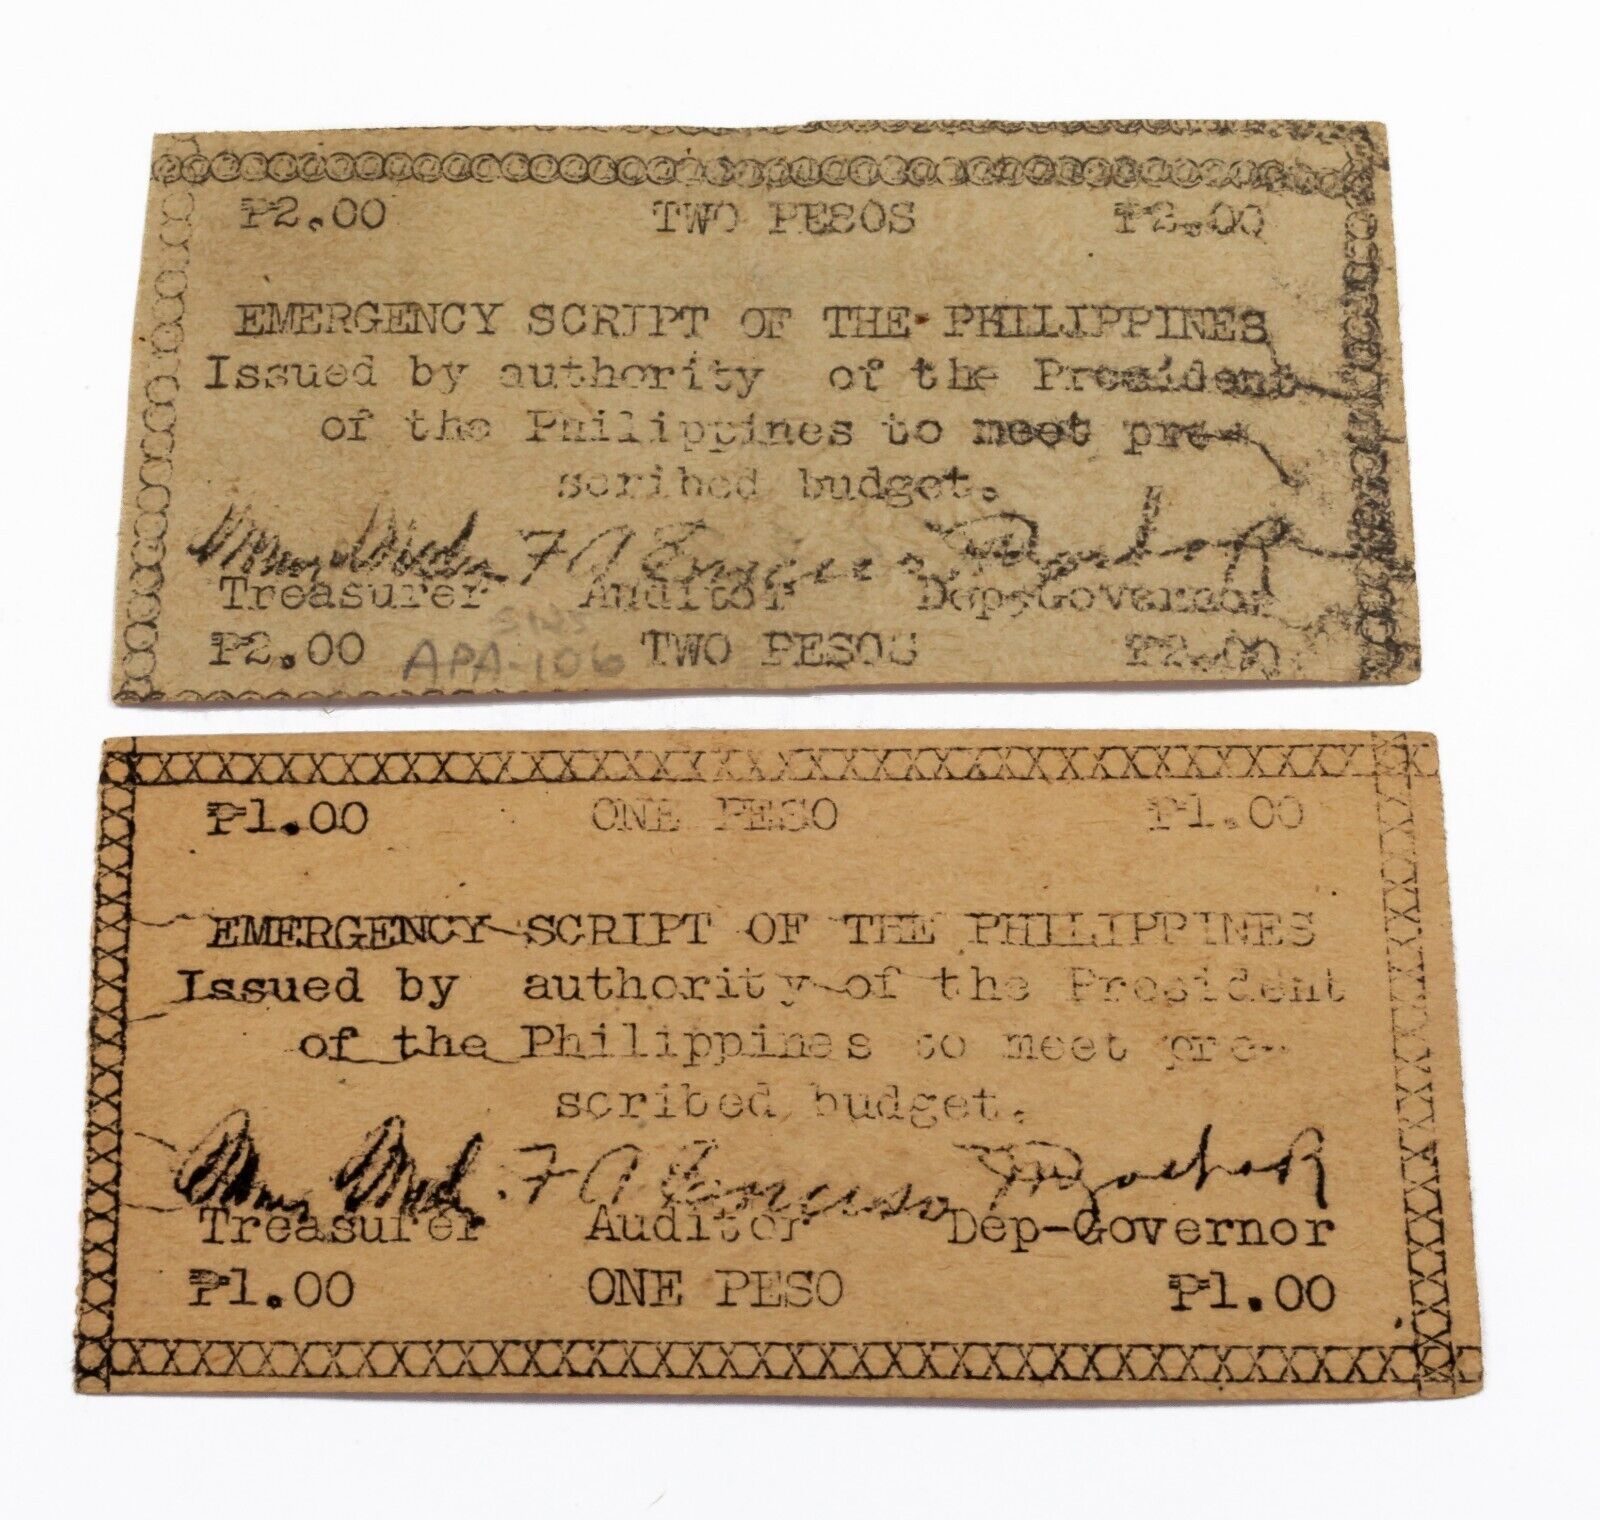 ₱2.00 TWO PESOS ₱2.00
EMERGENCY SCRIPT OF THE PHILIPPINES
Issued by authority of the President
of the Philippines to meet pre-
scribed budget.
F A
Treasurer Auditor Dep-Governor
₱2.00 APA-106 TWO PESOS ₱2.00
₱1.00 ONE PESO ₱1.00
EMERGENCY SCRIPT OF THE PHILIPPINES
Issued by authority of the President
of the Philippines to meet pre-
scribed budget.
F A
Treasurer Auditor Dep-Governor
₱1.00 ONE PESO ₱1.00